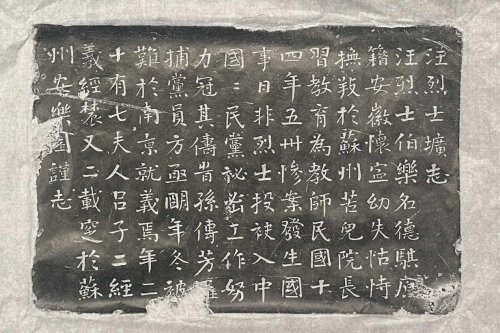 汪烈士壙志
汪烈士伯樂名德騏原
籍安徽懷寍幼失怙恃
撫敎於蘇州苦兒院長
習教育為教師民國十
四年五卅慘案發生國
事日非烈士投袂入中
國〻民黨祕密工作努
力冠其儔當孫傳芳羅
捕黨員方亟朙年冬被
難於南京就義焉年二
十有七夫人呂子二經
義經辳又二載窆於蘇
州安樂園謹志